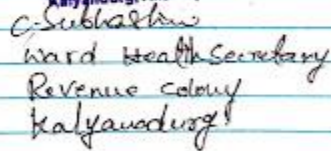 C. Subhashini
Ward Health Secretary
Revenue colony
Kalyanadurg